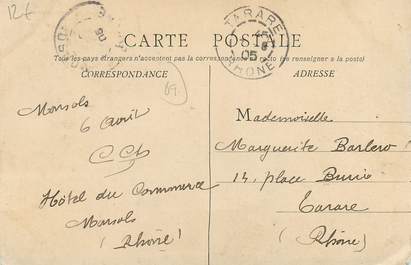 12€
TARARE
05
RHÔNE
CARTE POSTALE
Tous les pays étrangers n'acceptent pas la correspondance (se renseigner à la poste)
CORRESPONDANCE
ADRESSE
69
Monsols
6 Avril
Hôtel du Commerce
Monsols
(Rhône)
Mademoiselle
Marguerite
14, place
Tarare
(Rhône)